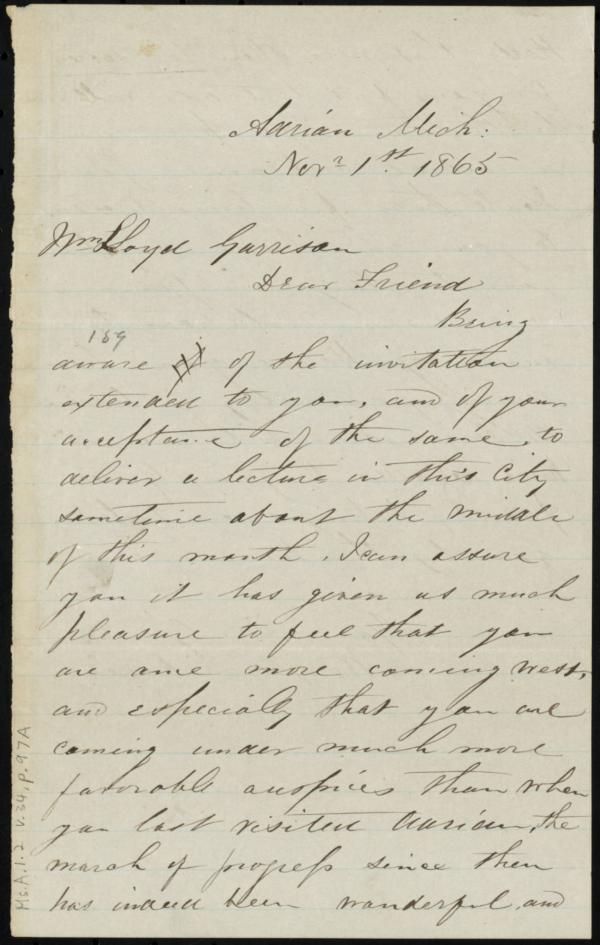 Adrian Mich:
Novr 1st. 1865
Wm Lloyd Garrison
Dear Friend
Being
159
aware of the invitation
extended to you, and of your
acceptance of the same, to
deliver a lecture in this City
sometime about the middle
of this month. I can assure
you it has given us much
pleasure to feel that you
are once more coming west,
and especially that you are
coming under much more
favorable auspices than when
you last visited Adrian, the
march of progress since then
has indeed been wonderful, and
Ms.A.1.2 v.34, p.97A